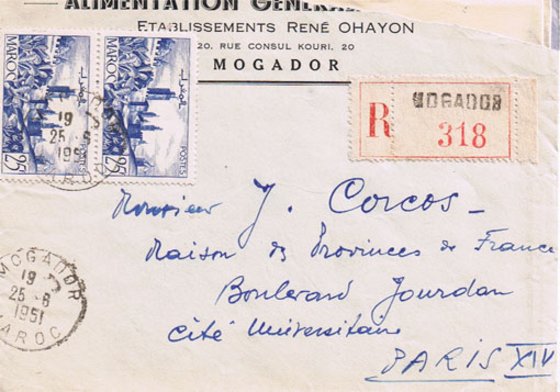 ALIMENTATION GÉNÉRALE
ETABLISSEMENTS RENÉ OHAYON
20, RUE CONSUL KOURI, 20
MOGADOR
MAROC
25F
POSTES
MAROC
25F
POSTES
19
25 - 6
1951
MAROC
MOGADOR
R
318
Monsieur J. Corcos
Maison des Provinces de France
Boulevard Jourdan
Cité Universitaire
PARIS XIV
MOGADOR
19
25 - 6
1951
MAROC